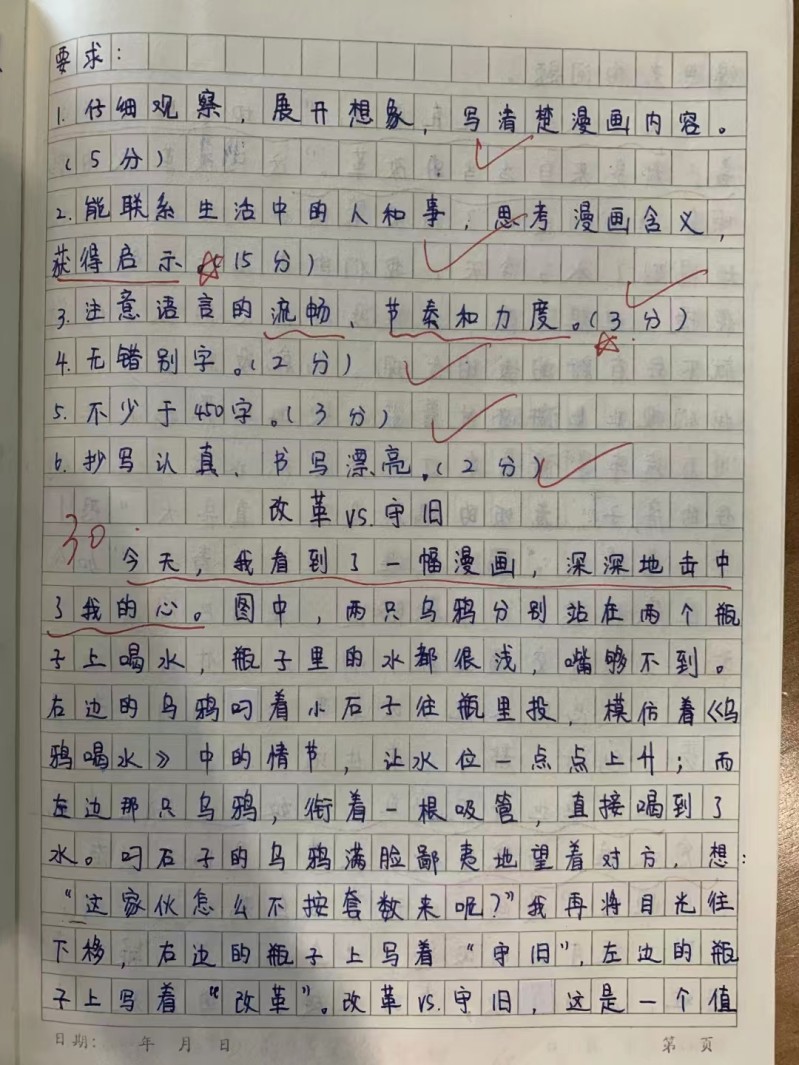 要求:
1. 仔细观察，展开想象，写清楚漫画内容。
(5分)
2. 能联系生活中的人和事，思考漫画含义，
获得启示。(15分)
3. 注意语言的流�、节奏和力度。(3分)
4. 无错别字。(2分)
5. 不少于450字。(3分)
6. 抄写认真、书写漂亮。(2分)
改革vs.守旧
30
今天，我看到了一幅漫画，深深地击中
了我的心。图中，两只乌鸦分别站在两个瓶
子上喝水，瓶子里的水都很浅，嘴够不到。
右边的乌鸦叼着小石子往瓶里投，模仿着《乌
鸦喝水》中的情节，让水位一点点上升；而
左边那只乌鸦，衔着一根吸管，直接喝到了
水。叼石子的乌鸦满脸鄙夷地望着对方，想：
“这家伙怎么不按套数来呢？”我再将目光往
下移，右边的瓶子上写着“守旧”，左边的瓶
子上写着“改革”。改革vs.守旧，这是一个值
日期: 年 月 日 第 页